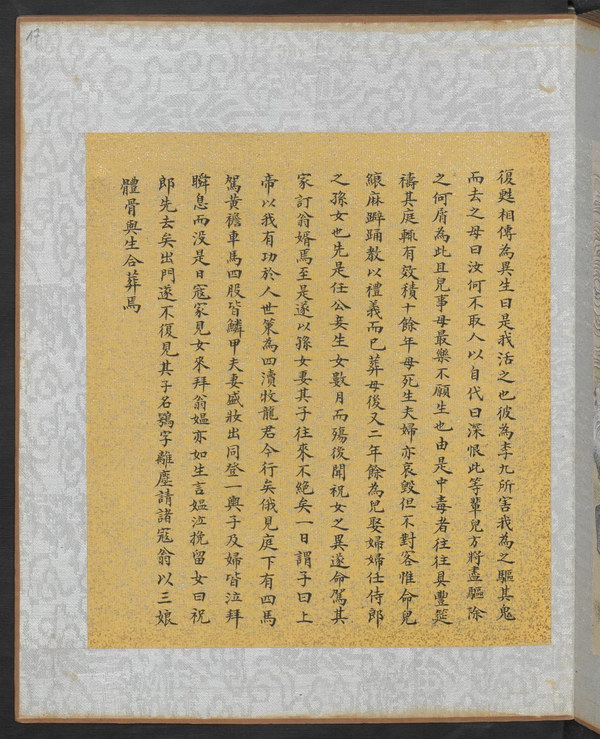 17
復甦相傳為異生曰是我活之也彼為李九所害我為之驅其鬼
而去之母曰汝何不取人以自代曰深恨此等輩兒方將盡驅除
之何屑為此且兒事母最樂不願生也由是中毒者往往具豐筵
禱其庭輒有效積十餘年母死生夫婦亦哀毀但不對客惟命兒
縗麻擗踊教以禮義而已葬母後又二年餘為兒娶婦婦仕侍郎
之孫女也先是任公妾生女數月而殤後聞祝女之異遂命駕其
家訂翁婿焉至是遂以孫女妻其子往來不絕矣一日謂子曰上
帝以我有功於人世策為四瀆牧龍君今行矣俄見庭下有四馬
駕黃襜車馬四股皆鱗甲夫妻盛妝出同登一輿子及婦皆泣拜
瞬息而没是日寇家見女來拜翁媼亦如生言媼泣挽留女曰祝
郎先去矣出門遂不復見其子名鶚字離塵請諸寇翁以三娘
體骨與生合葬焉